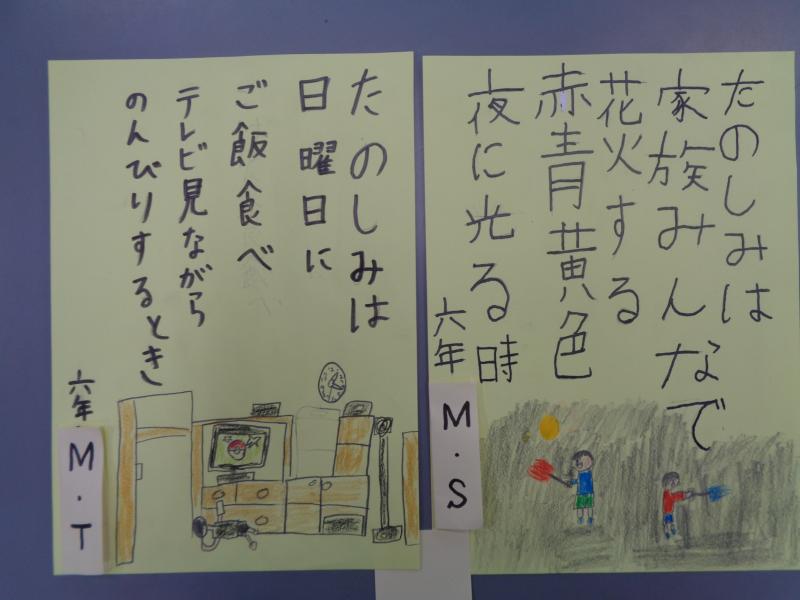 たのしみは
家族みんなで
花火する
赤青黄色
夜に光る時
六年
M・S
たのしみは
日曜日に
ご飯食べ
テレビ見ながら
のんびりするとき
六年
M・T